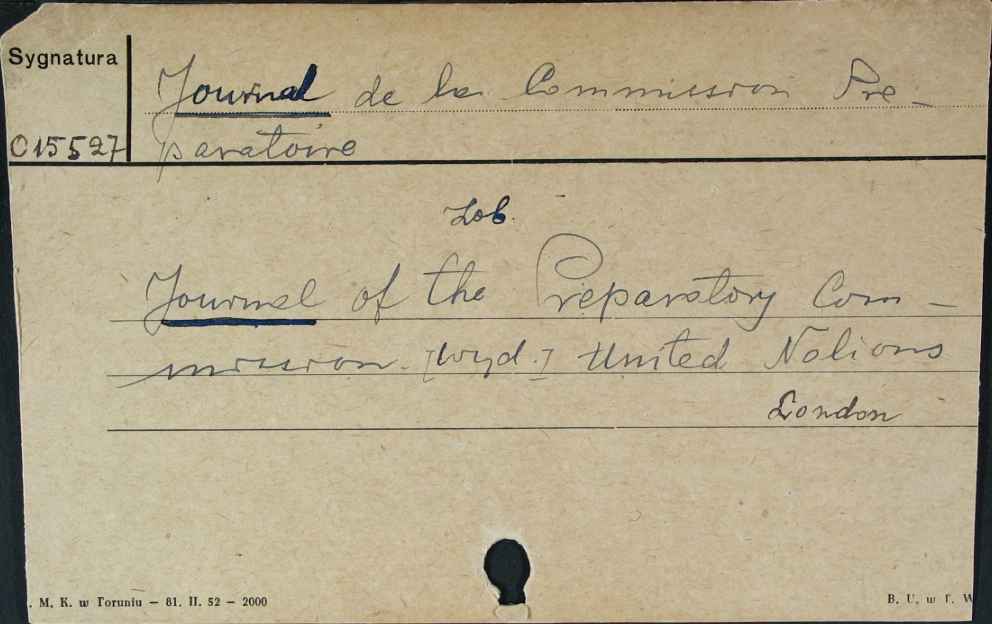 Sygnatura
Journal de la Commission Pre-
015527 paratoire
Zob.
Journal of the Preparatory Com-
mission. [Wyd.] United Nations
London
. M. K. w Toruniu — 81. II. 52 — 2000
B. U. w T. W